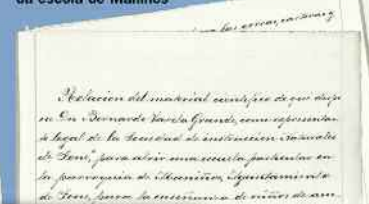 da escola de Maniños
las
Relacion del material cientifico de que dispo
ne Dn Bernardo Varela Grande, como representan
te legal de la Sociedad de instruccion Naturales
de Fene, para abrir una escuela particular en
la parroquia de Maniños, Ayuntamiento
de Fene, para la enseñanza de niños de am-